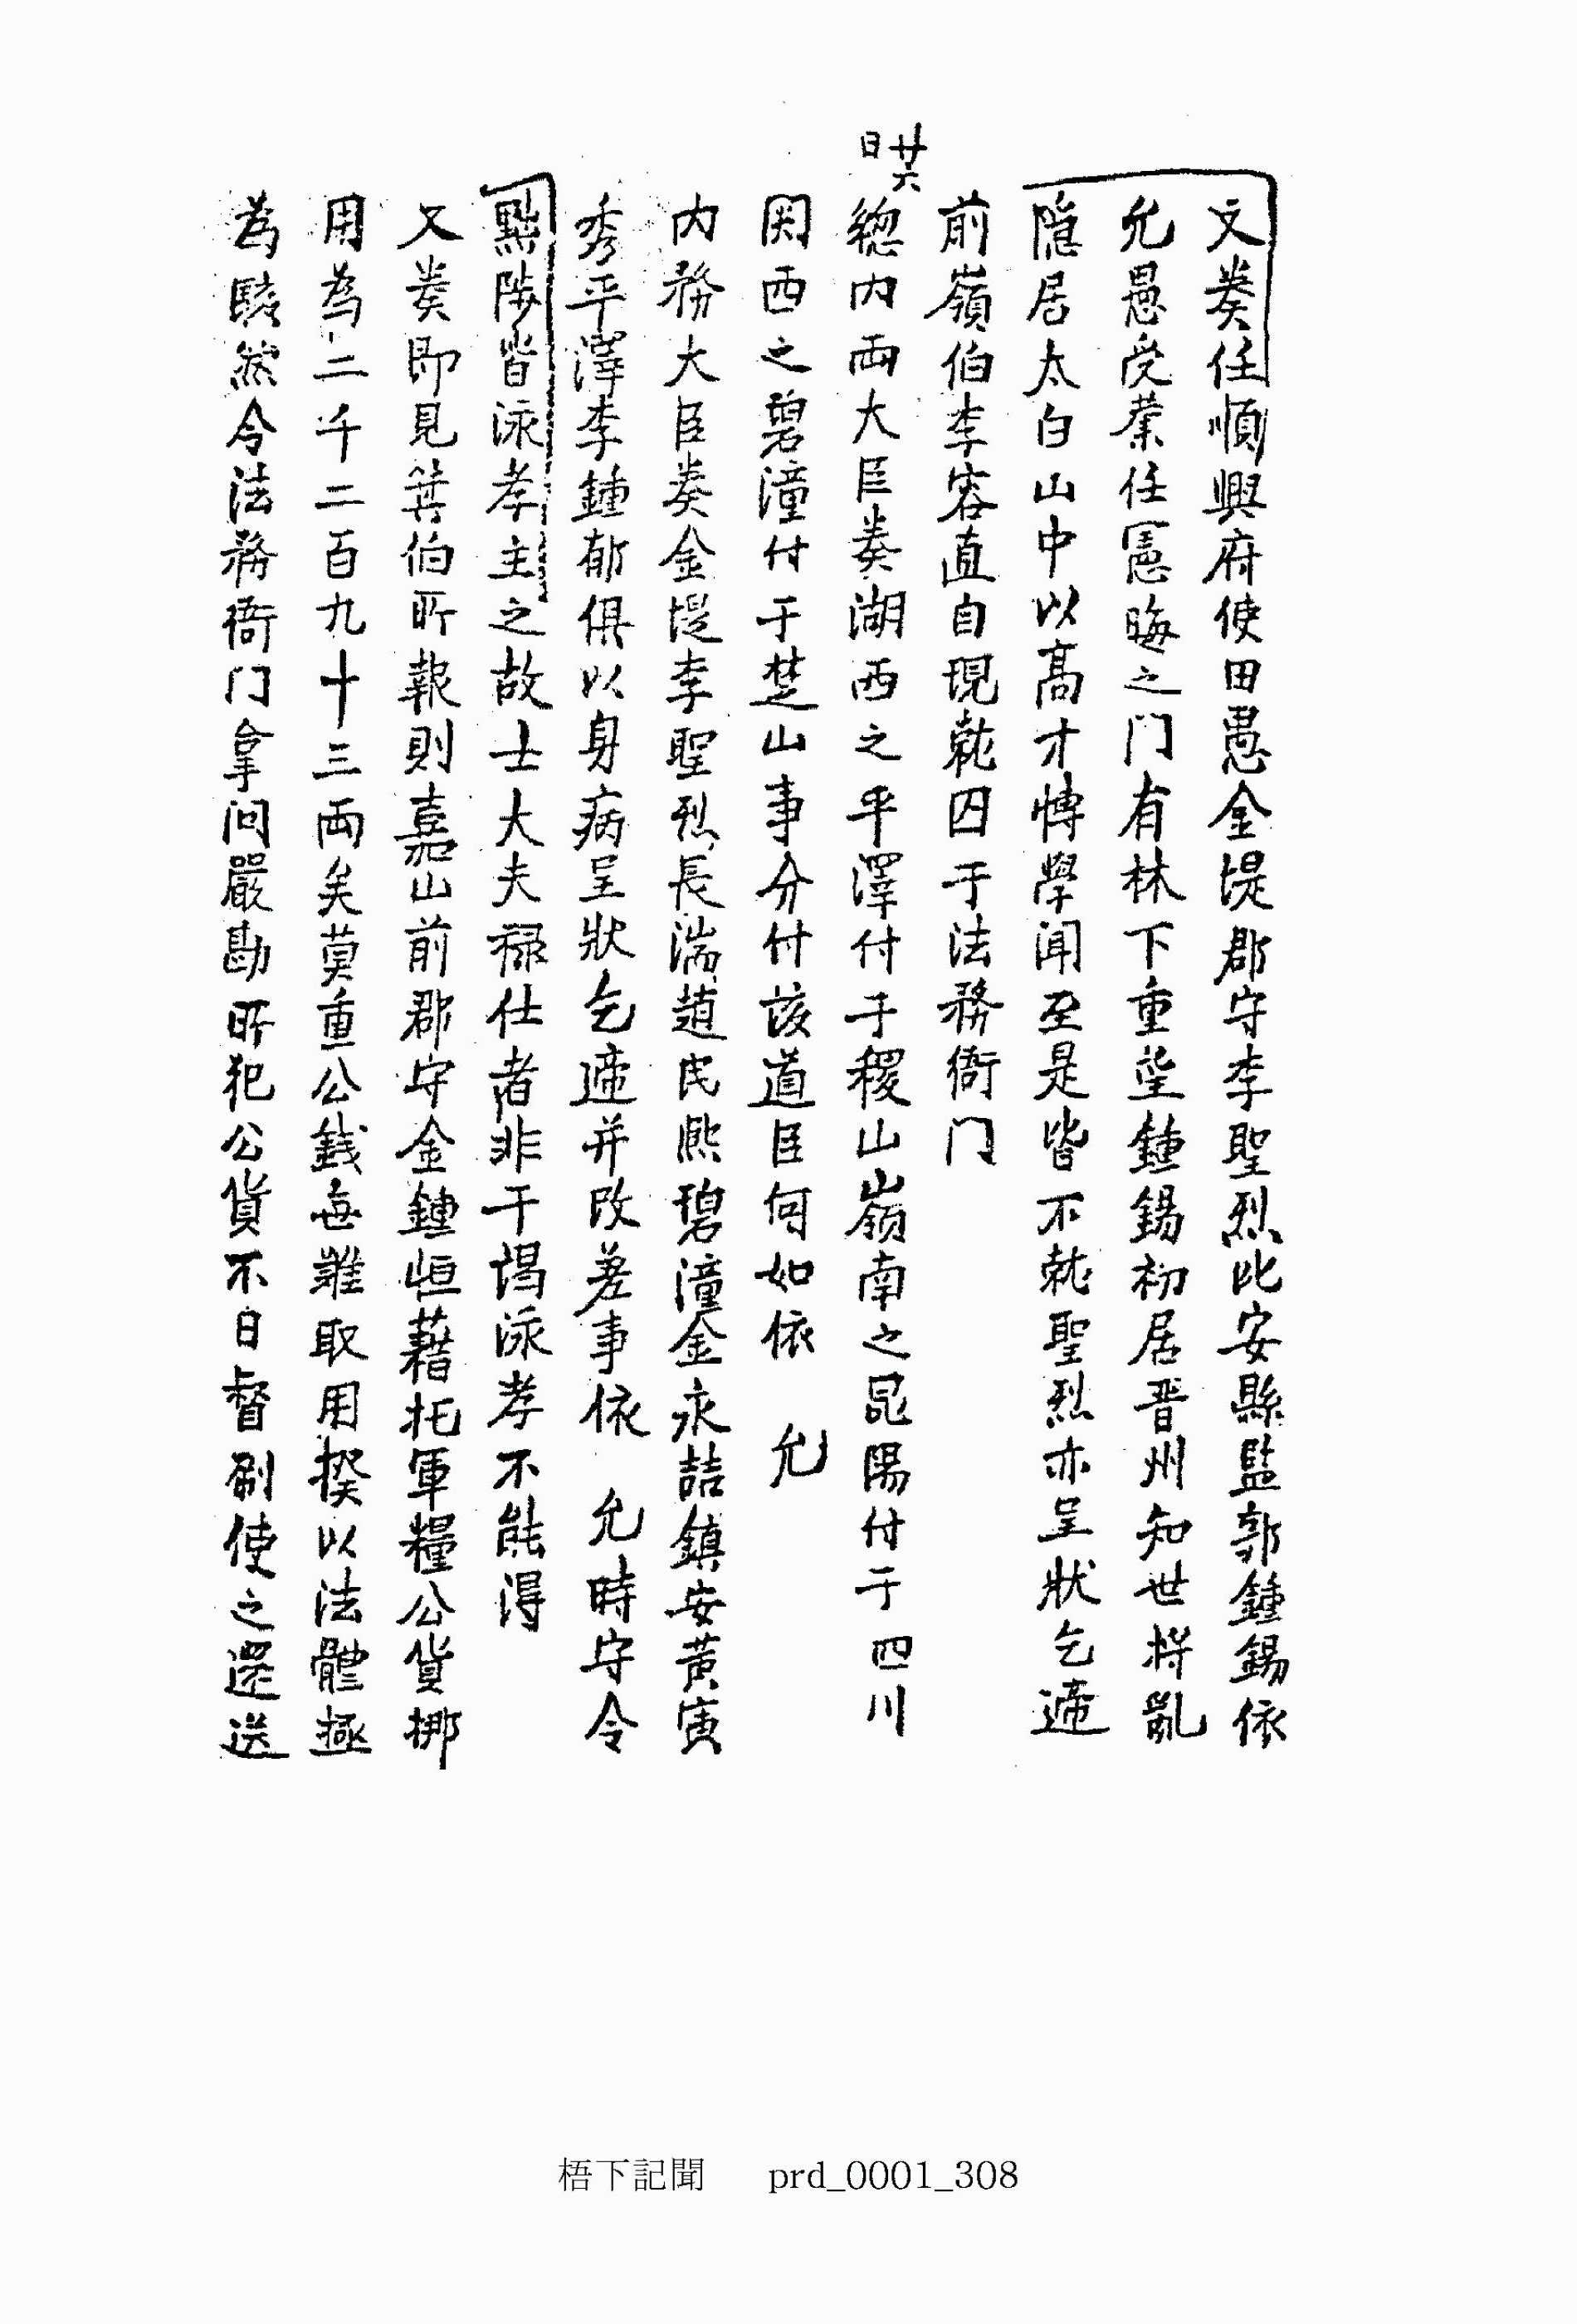 又奏任順興府使田愚金堤郡守李聖烈比安縣監郭鍾錫依
允愚受業任憲晦之门有林下重望鍾錫初居晋州知世将亂
隐居太白山中以高才博學闻至是皆不就聖烈亦呈狀乞遞
前嶺伯李容直自現就囚于法務衙门
廿六日
總内両大臣奏湖西之平澤付于稷山嶺南之昆陽付于四川
関西之碧潼付于楚山事分付該道臣何如依 允
内務大臣奏金堤李聖烈長湍趙民熙碧潼金永喆鎮安黄寅
秀平澤李鍾郁俱以身病呈狀乞遞并改差事依 允時守令
黜陟皆泳孝主之故士大夫禄仕者非干謁泳孝不能得
又奏即見箕伯所報則嘉山前郡守金鍾恒藉托軍糧公貨挪
用為二千二百九十三両矣莫重公銭毎難取用揆以法體極
為駭然令法務衙门拿问嚴勘所犯公貨不日督刷使之還送
梧下記聞 prd_0001_308